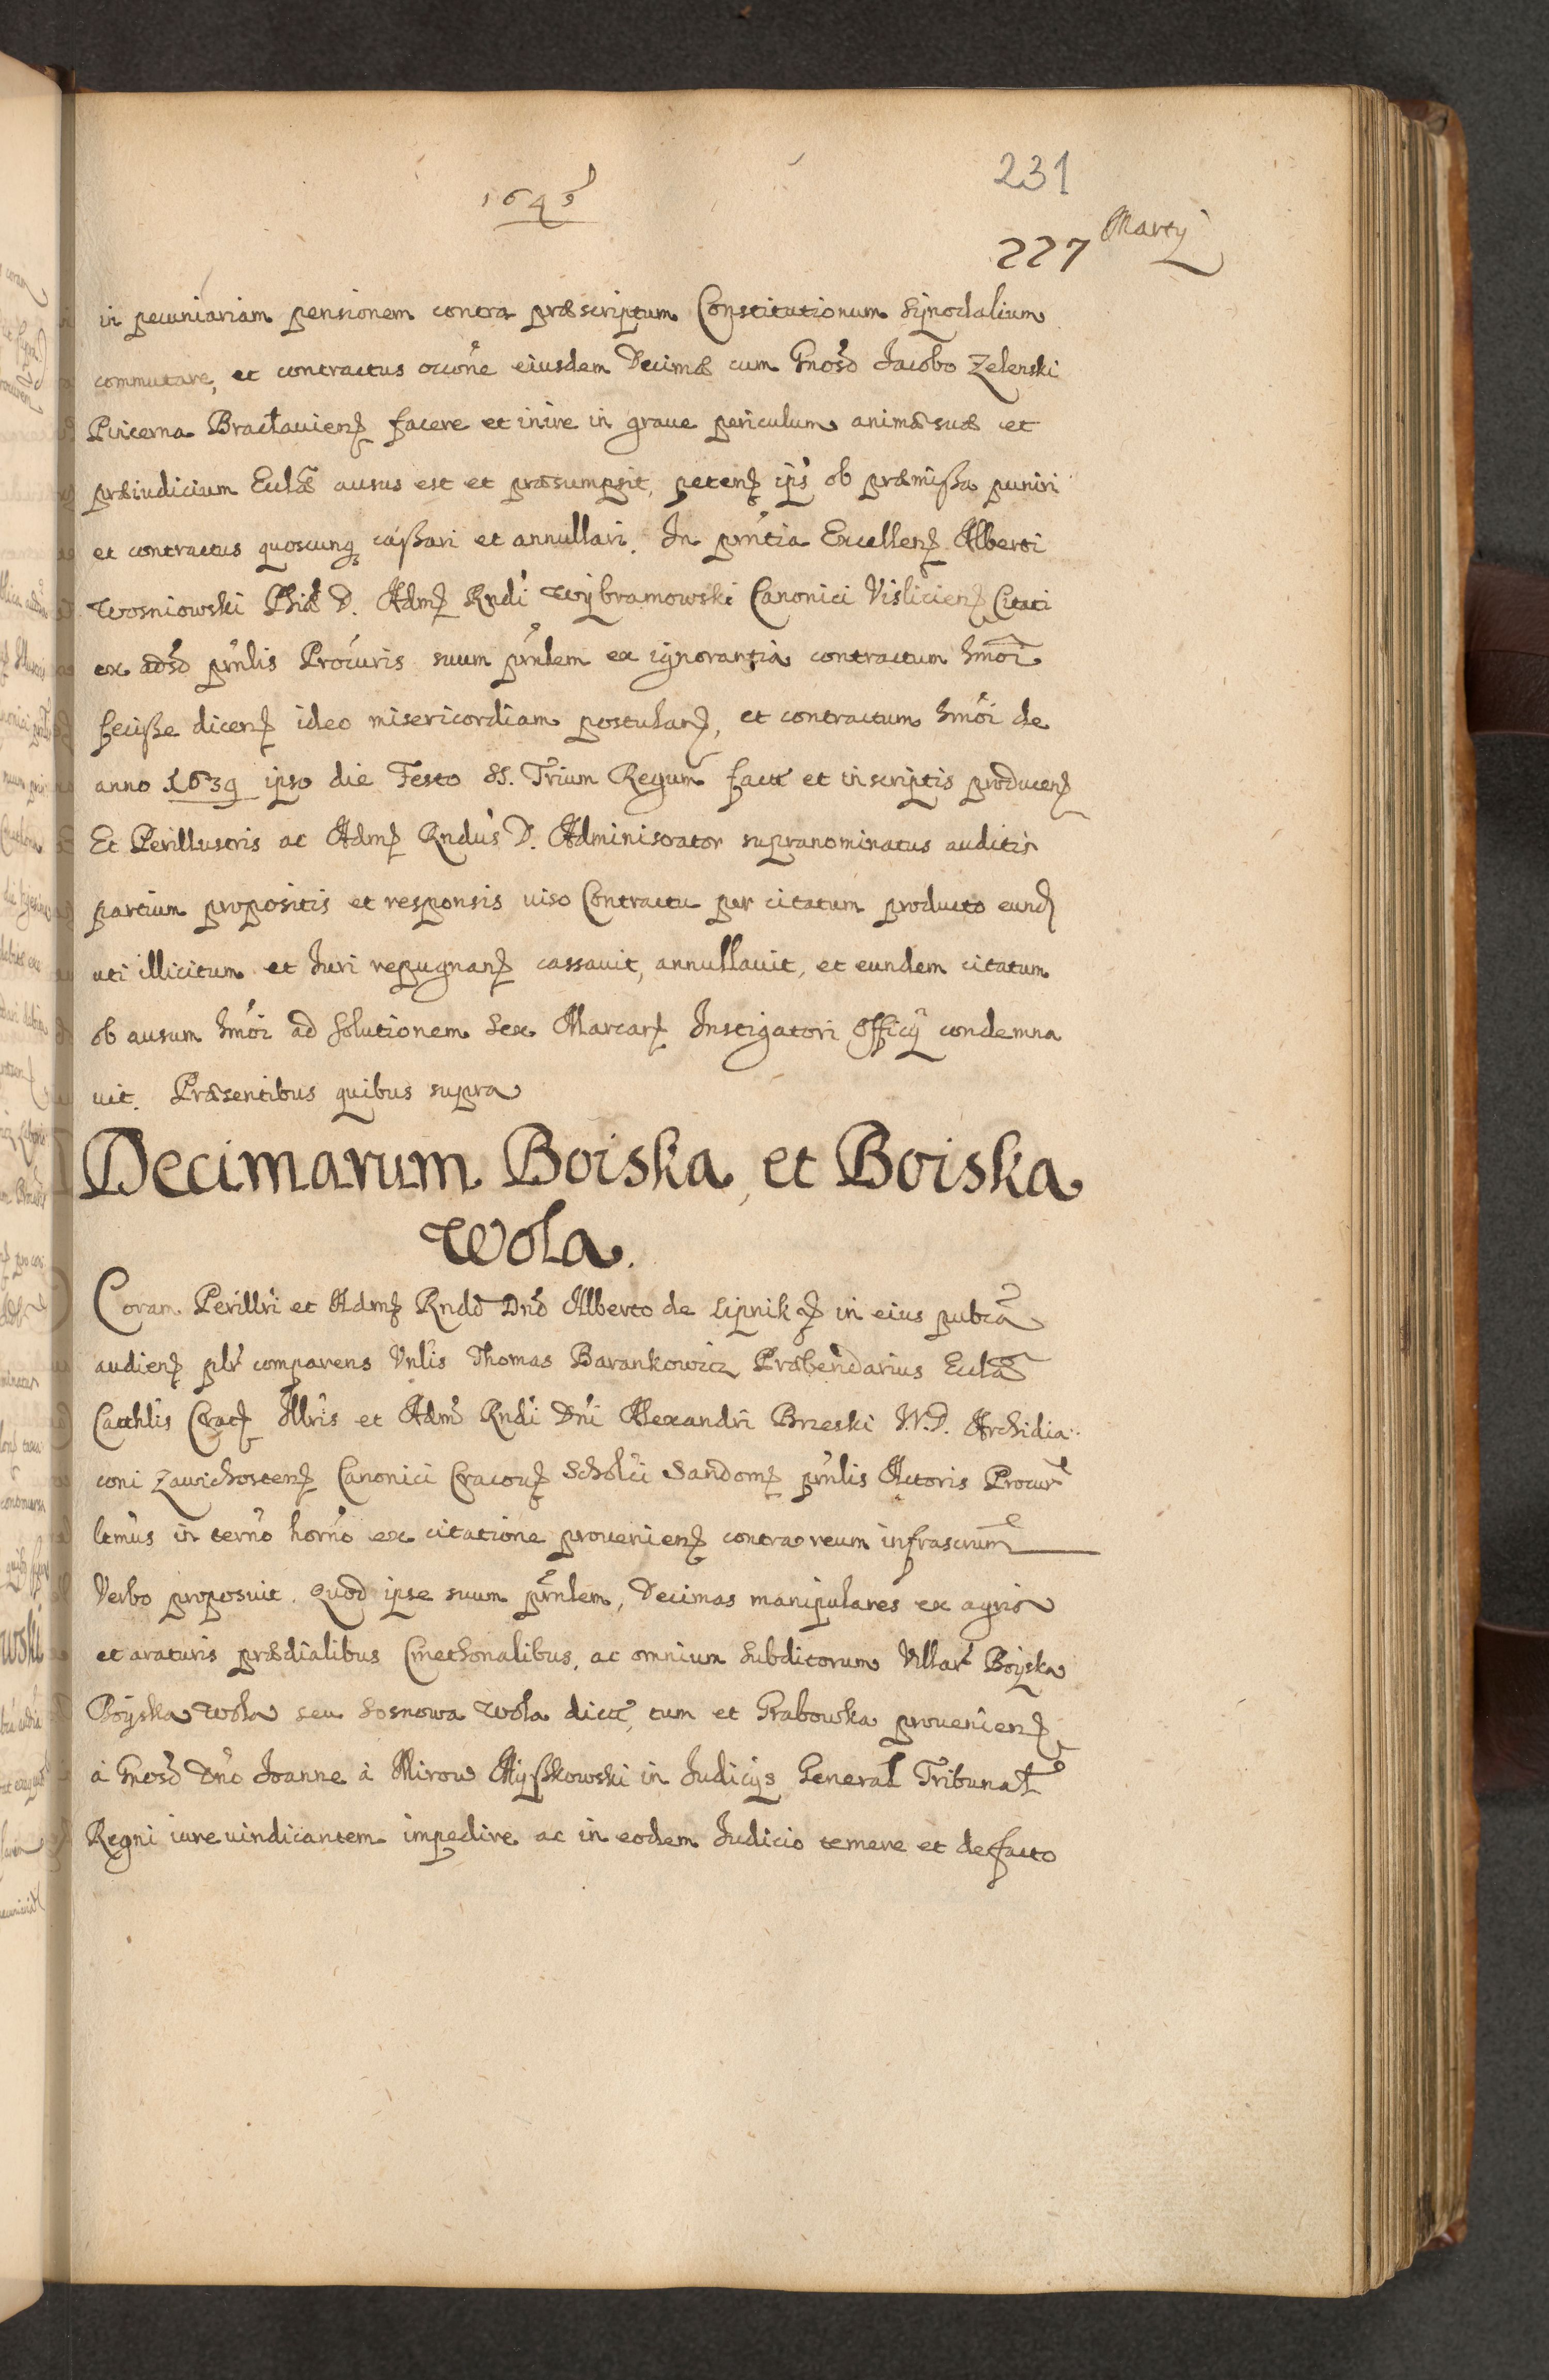 1643
231
227 Martÿ
in pecuniariam pensionem contra præscriptum Constitutionum Sijnodalium
commutare, et contractus occõne eiusdem Decimæ cum Gnosõ Jacobo Zelenski
Pincerna Bracłauienꝭ facere et inire in graue periculum animæ suæ et
præiudicium Eccłæ ausus est et præsumpsit, petenꝭ ips̃ ob præmißa puniri
et contractus quoscunqꝫ caßari et annullari. In pñtia Excellenꝭ Alberti
Wosniowski Phiæ D. Admꝭ Rndi Wÿbramowski Canonici Vislicienꝭ Citati
ex aduso prñlis Procuris suum prñlem ex ignorantia contractum hmõi
feciße dicenꝭ ideo misericordiam postulanꝭ, et contractum hmõi de
anno 1639 ipso die Festo SS. Trium Regum factũ et in scriptis producenꝭ
Et Perillustris ac Admꝭ Rndus D. Administrator supranominatus auditis
partium propositis et responsis uiso Contractu per citatum producto eundꝭ
uti illicitum et Iuri repugnanꝭ cassauit, annullauit, et eundem citatum
ob ausum hmõi ad solutionem Sex Marcarꝭ Instigatori Officÿ condemna
uit. Præsentibus quibus supra
Decimarum Boiska, et Boiska
Wola.
Coram Perillri et Admꝭ Rndo Dnõ Alberto de Lipnik ꝭ in eius pubca
audienꝭ plr̃ comparens Vnlis Thomas Barankowicz Præbendarius Eccłæ
Cathlis Cracꝭ Illris et Adm̃ Rndi Dñi Alexandri Brzeski V.I.D. Archidia
coni Zawichostenꝭ Canonici Cracouꝭ Scholci Sandomꝭ prñlis Actoris Procur
ltmus in terño horño ex citatione prouenienꝭ contra reum infrascrum
Verbo proposuit. Quod ipse suum prñlem, Decimas manipulares ex agris
et araturis prædialibus Cmethonalibus, ac omnium subditorum Villar̃ Boÿska
Boÿska Wola seu Sosnowa Wola dictæ, tum et Grabowka prouenienꝭ
à Gnosõ Dnõ Joanne à Mirow Mÿßkowski in Judicÿs General Tribunal
Regni iure uindicantem impedire ac in eodem Judicio temere et de facto